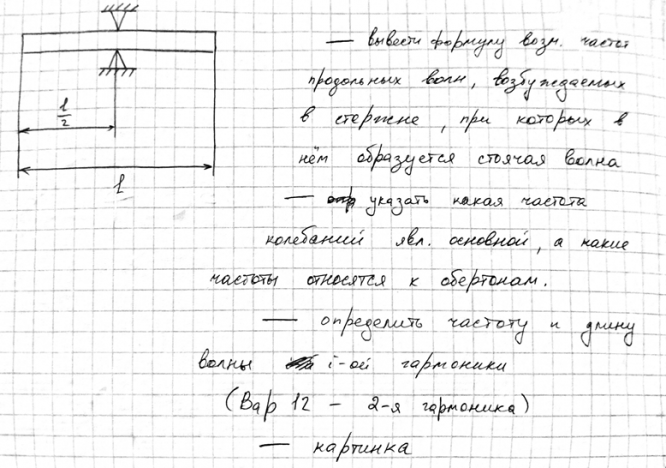 — вывести формулу возм. частот
продольных волн, возбуждаемых
в стержне, при которых в
нём образуется стоячая волна
— указать какая частота
колебаний явл. основной, а какие
частоты относятся к обертонам.
— определить частоту и длину
волны i-ой гармоники
(Вар 12 – 2-я гармоника)
— картинка
l
2
l